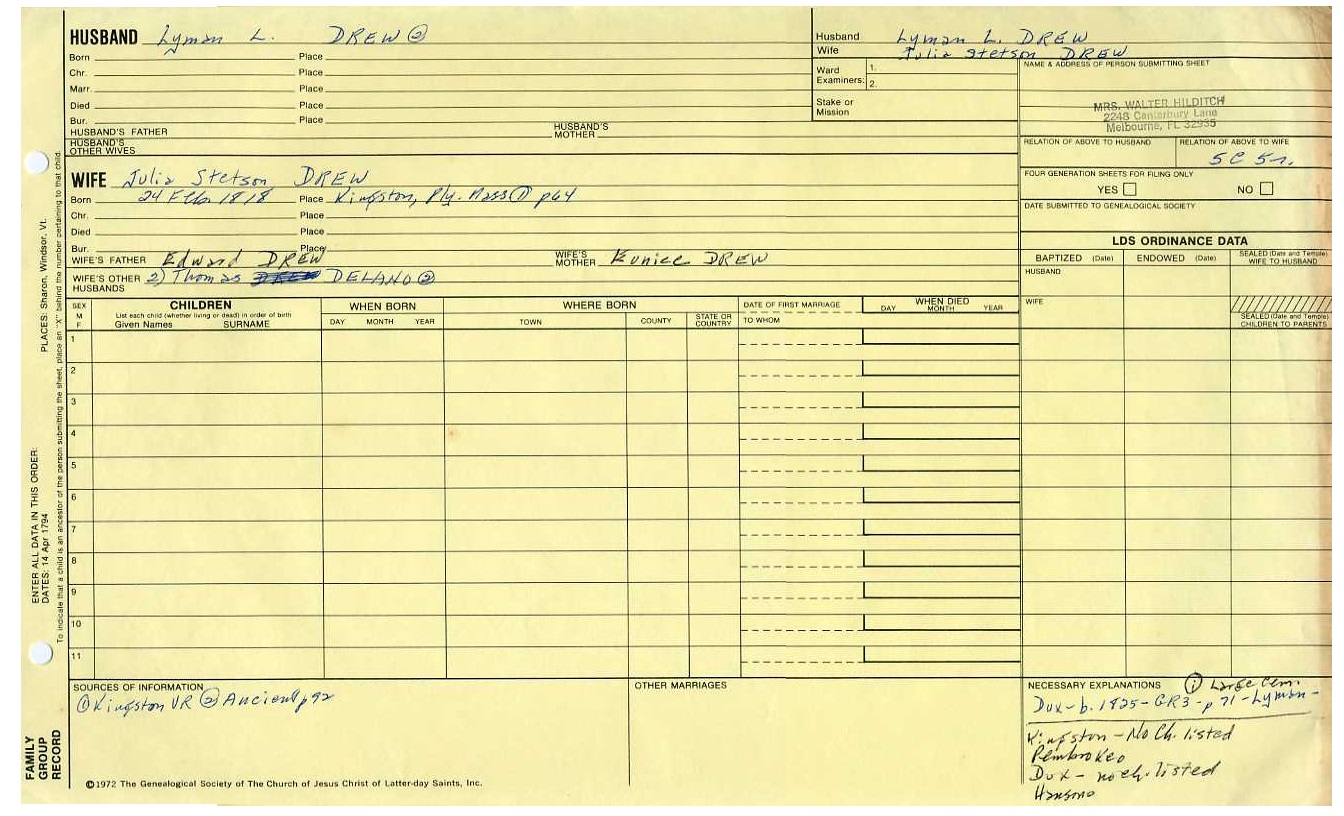 HUSBAND Lyman L. DREW ②
Born Place
Chr. Place
Marr. Place
Died Place
Bur. Place
HUSBAND'S FATHER HUSBAND'S MOTHER
HUSBAND'S OTHER WIVES
Husband Lyman L. DREW
Wife Julia Stetson DREW
Ward Examiners: 1.
2.
Stake or Mission
NAME & ADDRESS OF PERSON SUBMITTING SHEET
MRS. WALTER HILDITCH
2248 Canterbury Lane
Melbourne, FL 32935
RELATION OF ABOVE TO HUSBAND RELATION OF ABOVE TO WIFE
5C 5r.
FOUR GENERATION SHEETS FOR FILING ONLY
YES NO
DATE SUBMITTED TO GENEALOGICAL SOCIETY
WIFE Julia Stetson DREW
Born 24 Feb 1818 Place Kingston, Ply. Mass ① p64
Chr. Place
Died Place
Bur. Place
WIFE'S FATHER Edward DREW WIFE'S MOTHER Eunice DREW
WIFE'S OTHER HUSBANDS 2) Thomas DELANO ②
LDS ORDINANCE DATA
BAPTIZED (Date) ENDOWED (Date) SEALED (Date and Temple) WIFE TO HUSBAND
HUSBAND
WIFE
SEALED (Date and Temple) CHILDREN TO PARENTS
SEX M F CHILDREN WHEN BORN WHERE BORN DATE OF FIRST MARRIAGE WHEN DIED
List each child (whether living or dead) in order of birth
Given Names SURNAME DAY MONTH YEAR TOWN COUNTY STATE OR COUNTRY TO WHOM DAY MONTH YEAR
1
2
3
4
5
6
7
8
9
10
11
SOURCES OF INFORMATION
① Kingston VR ② Ancient p92
OTHER MARRIAGES
NECESSARY EXPLANATIONS ① Large Cem.
Dux - b. 1825 - GR3 - p 71 - Lyman -
Kingston - No Ch. listed
Pembroke o
Dux - no ch. listed
Hanson o
©1972 The Genealogical Society of The Church of Jesus Christ of Latter-day Saints, Inc.
FAMILY
GROUP
RECORD
ENTER ALL DATA IN THIS ORDER:
DATES: 14 Apr 1794
PLACES: Sharon, Windsor, Vt.
To indicate that a child is an ancestor of the person submitting the sheet, place an "X" behind the number pertaining to that child.